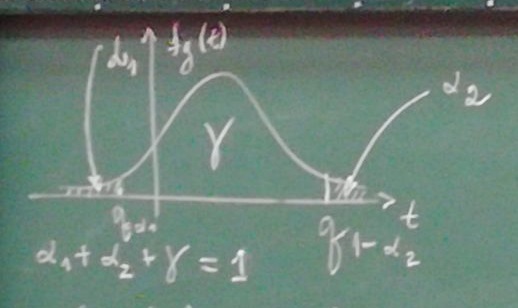 α₁ f_g(t)
α₂
γ
t
q_α₁ q_{1-α₂}
α₁ + α₂ + γ = 1